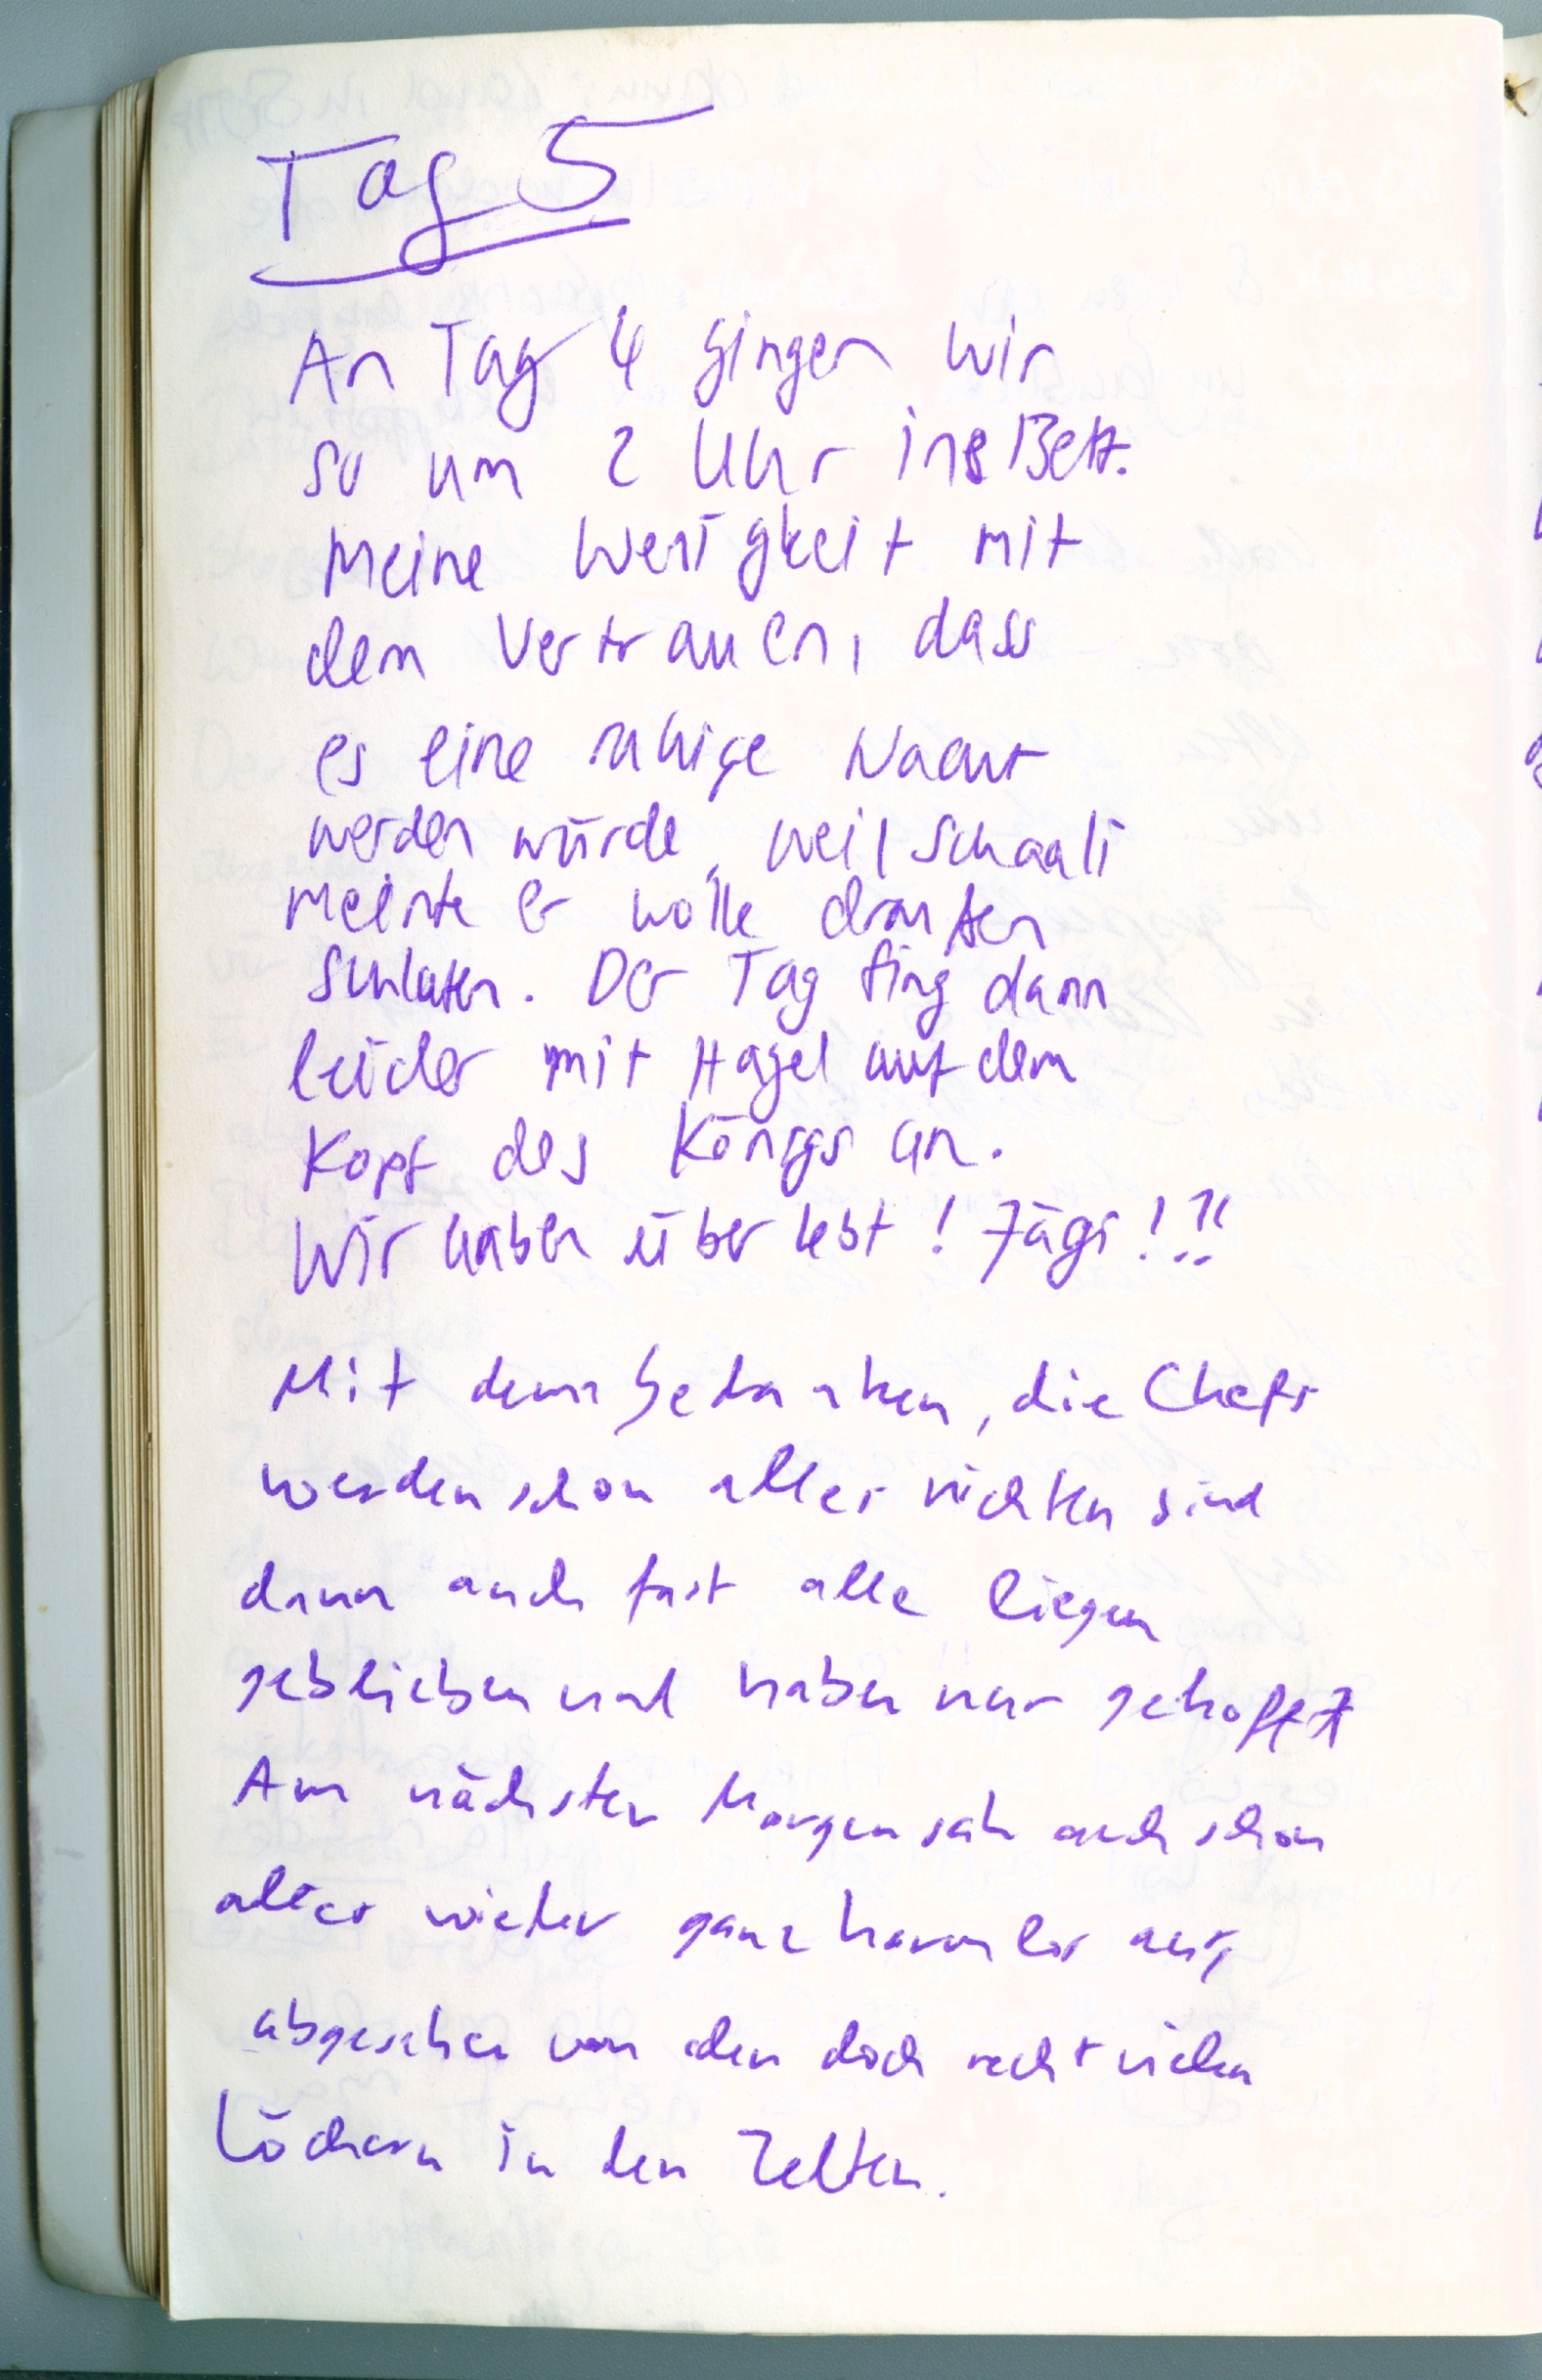 Tag 5
An Tag 4 gingen wir
so um 2 Uhr ins Bett.
Meine Wenigkeit mit
dem Vertrauen, dass
es eine ruhige Nacht
werden würde, weil Schaali
meinte er wolle draußen
schlafen. Der Tag fing dann
leider mit Hagel auf dem
Kopf des Königs an.
Wir haben überlebt!
Mit dem Gedanken, die Chefs
werden schon alles richten sind
dann auch fast alle liegen
geblieben und haben nur gehofft
Am nächsten Morgen sah auch schon
alles wieder ganz harmlos aus,
abgesehen von den doch recht vielen
Löchern in den Zelten.